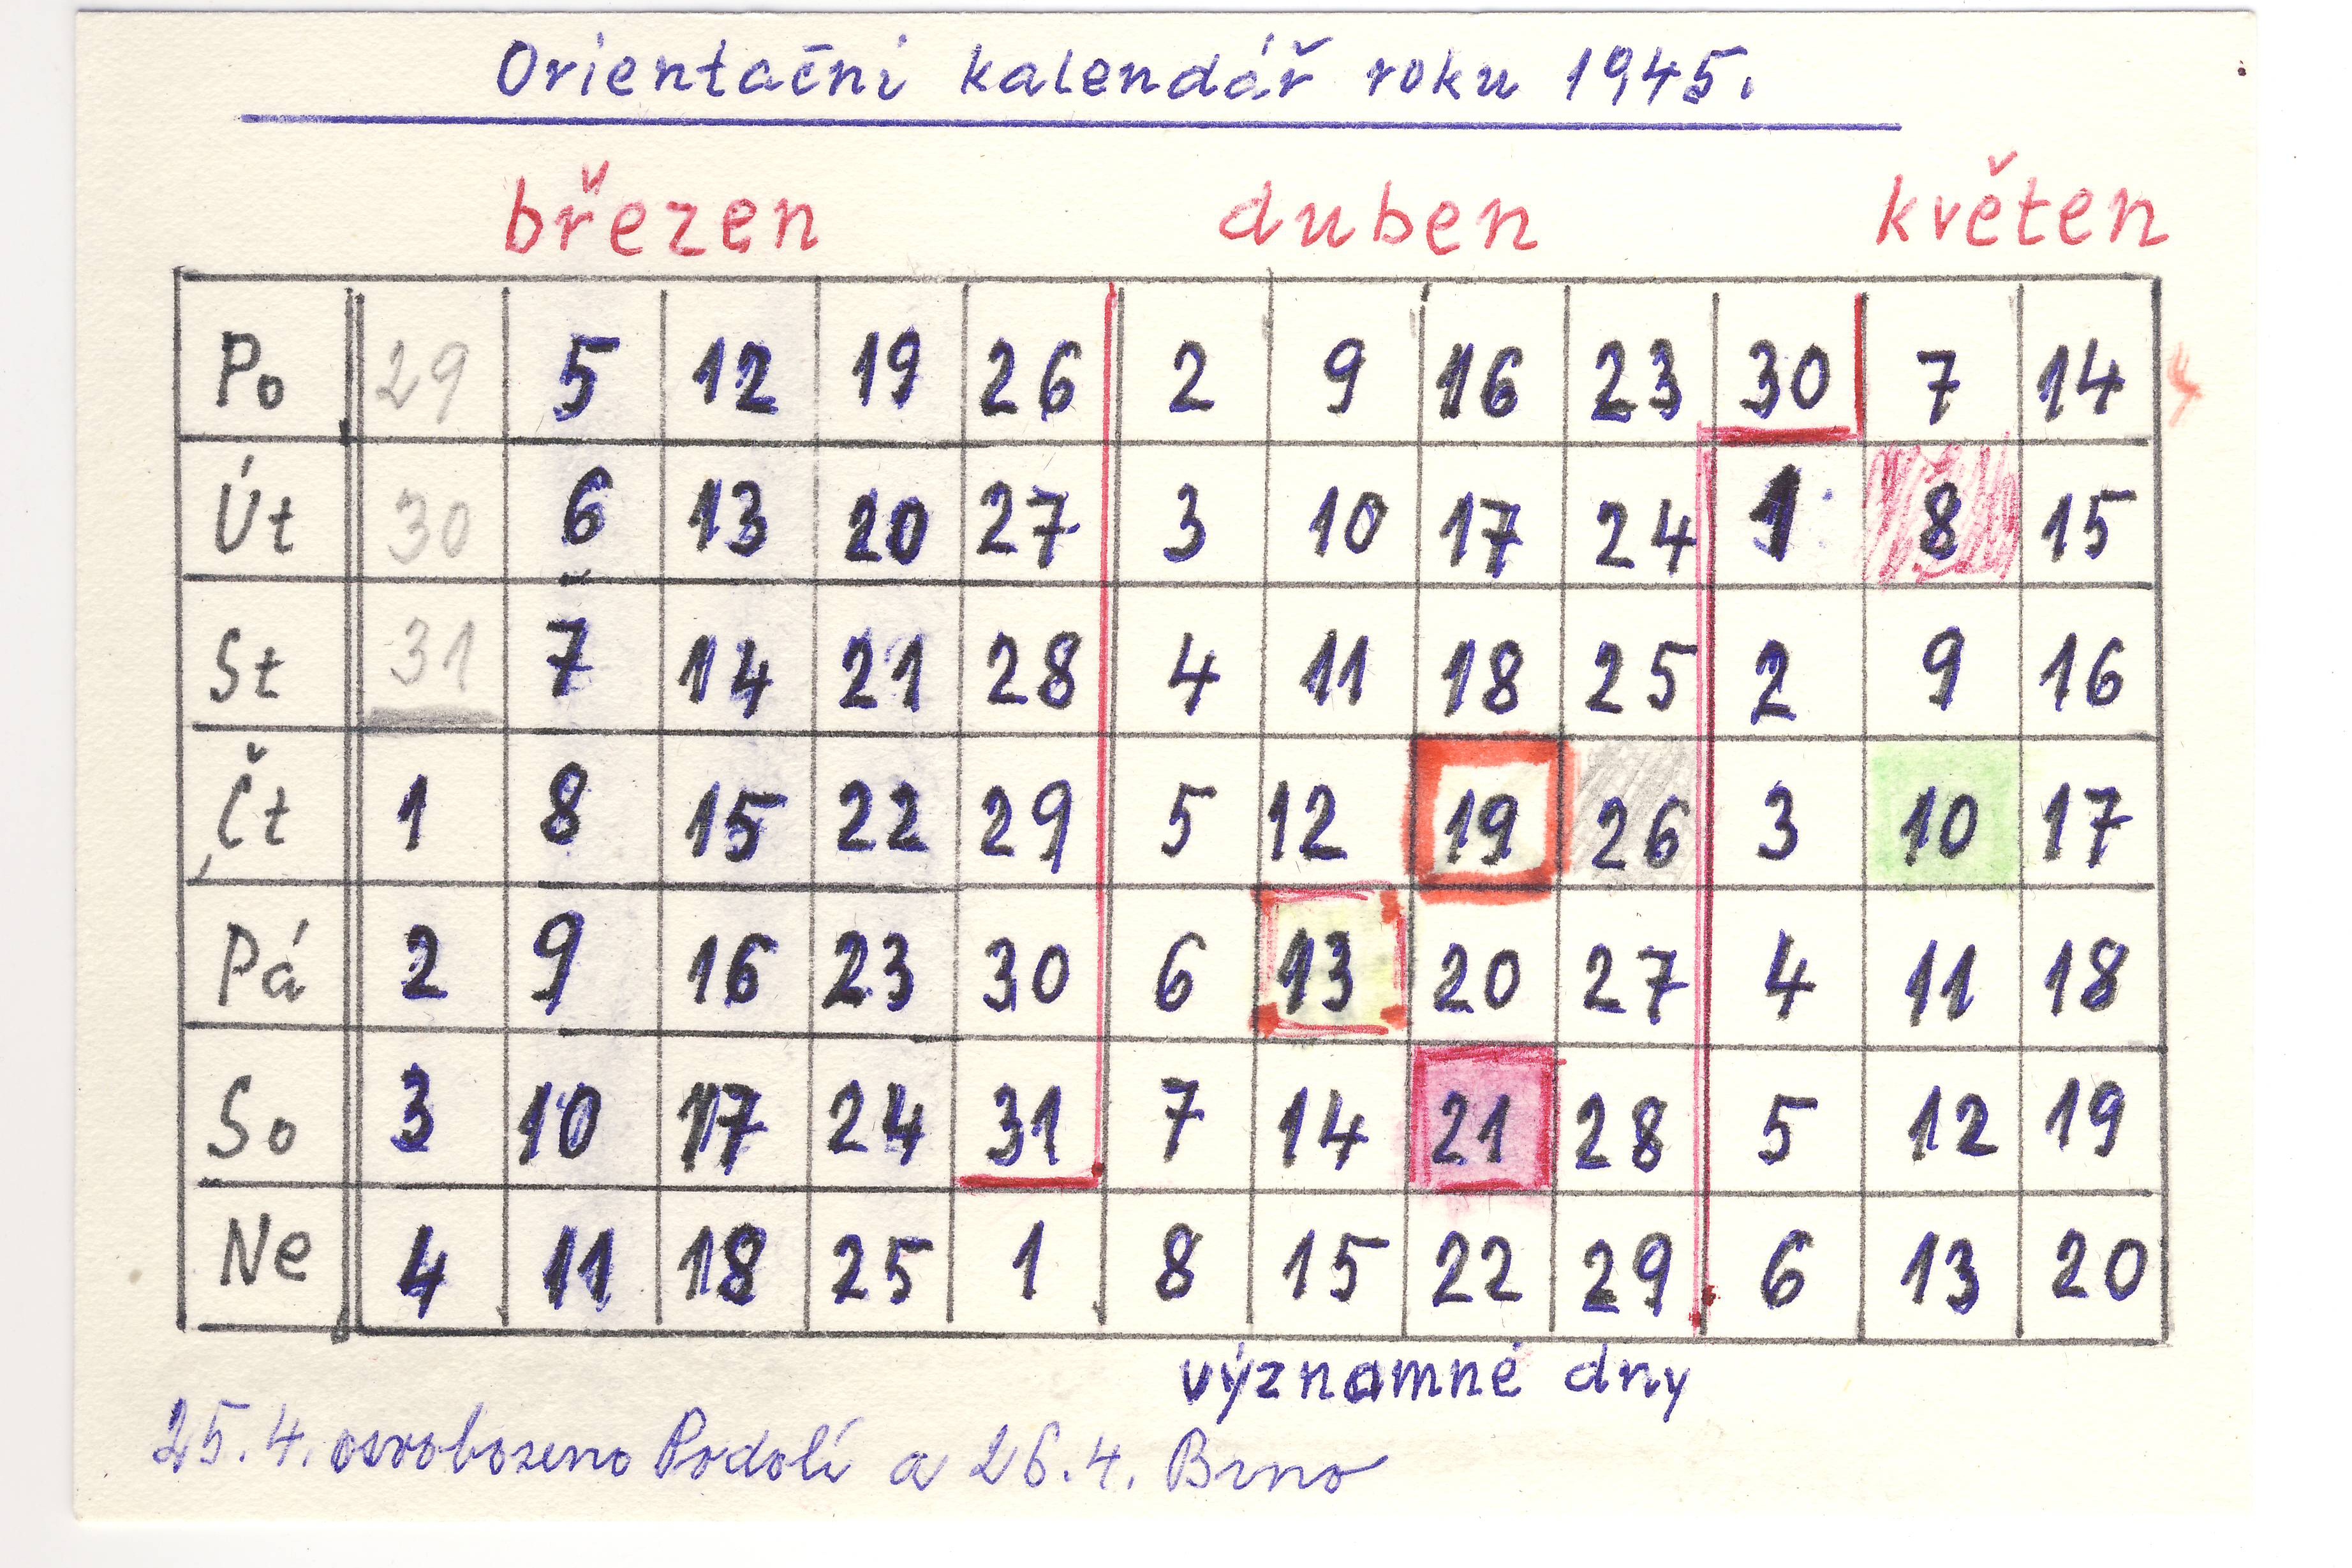 Orientační kalendář roku 1945.
březen duben květen
Po 29 5 12 19 26 2 9 16 23 30 7 14 4
Út 30 6 13 20 27 3 10 17 24 1 8 15
St 31 7 14 21 28 4 11 18 25 2 9 16
Čt 1 8 15 22 29 5 12 19 26 3 10 17
Pá 2 9 16 23 30 6 13 20 27 4 11 18
So 3 10 17 24 31 7 14 21 28 5 12 19
Ne 4 11 18 25 1 8 15 22 29 6 13 20
významné dny
25.4. osvobozeno Podolí a 26.4. Brno